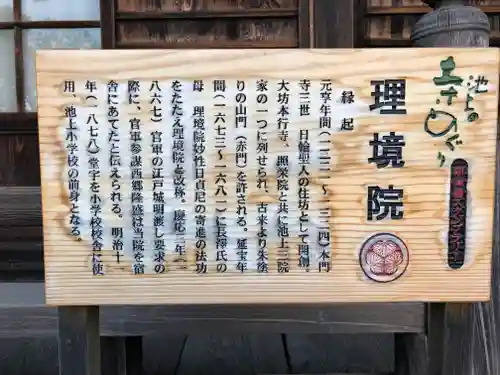 池上の
寺めぐり
理境院
縁起
元亨年間(一三二一～一三二四)本門
寺三世 日輪聖人の住坊として開創。
大坊本行寺、照栄院と共に池上三院
家の一つに列せられ、古来より朱塗
りの山門(赤門)を許される。延宝年
間(一六七三～一六八一)長澤氏の
母 理境院妙性日貞尼の寄進の法功
をたたえ理境院と改称。慶応三年(一
八六七)官軍の江戸城明渡し要求の
際に、官軍参謀西郷隆盛は当院を宿
舎にあてたと伝えられる。明治十一
年(一八七八)堂宇を小学校校舎に使
用、池上小学校の前身となる。